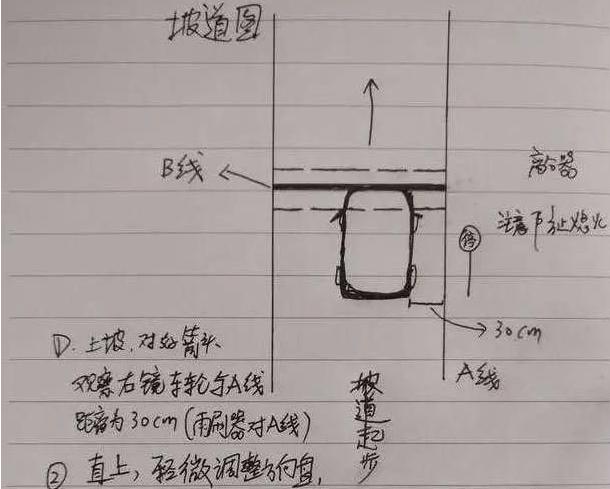 坡道图
B线
离合器
注意防止熄火
停
30cm
A线
坡道起步
①. 上坡,对好箭头
观察右镜车轮与A线
距离为30cm(雨刷器对A线)
② 直上,轻微调整方向盘,